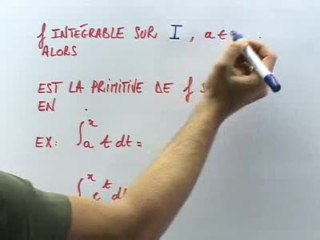 f INTÉGRABLE SUR I, a
ALORS
EST LA PRIMITIVE DE f
EN .
EX: ∫ₐˣ t dt =
∫ˣ eᵗ d